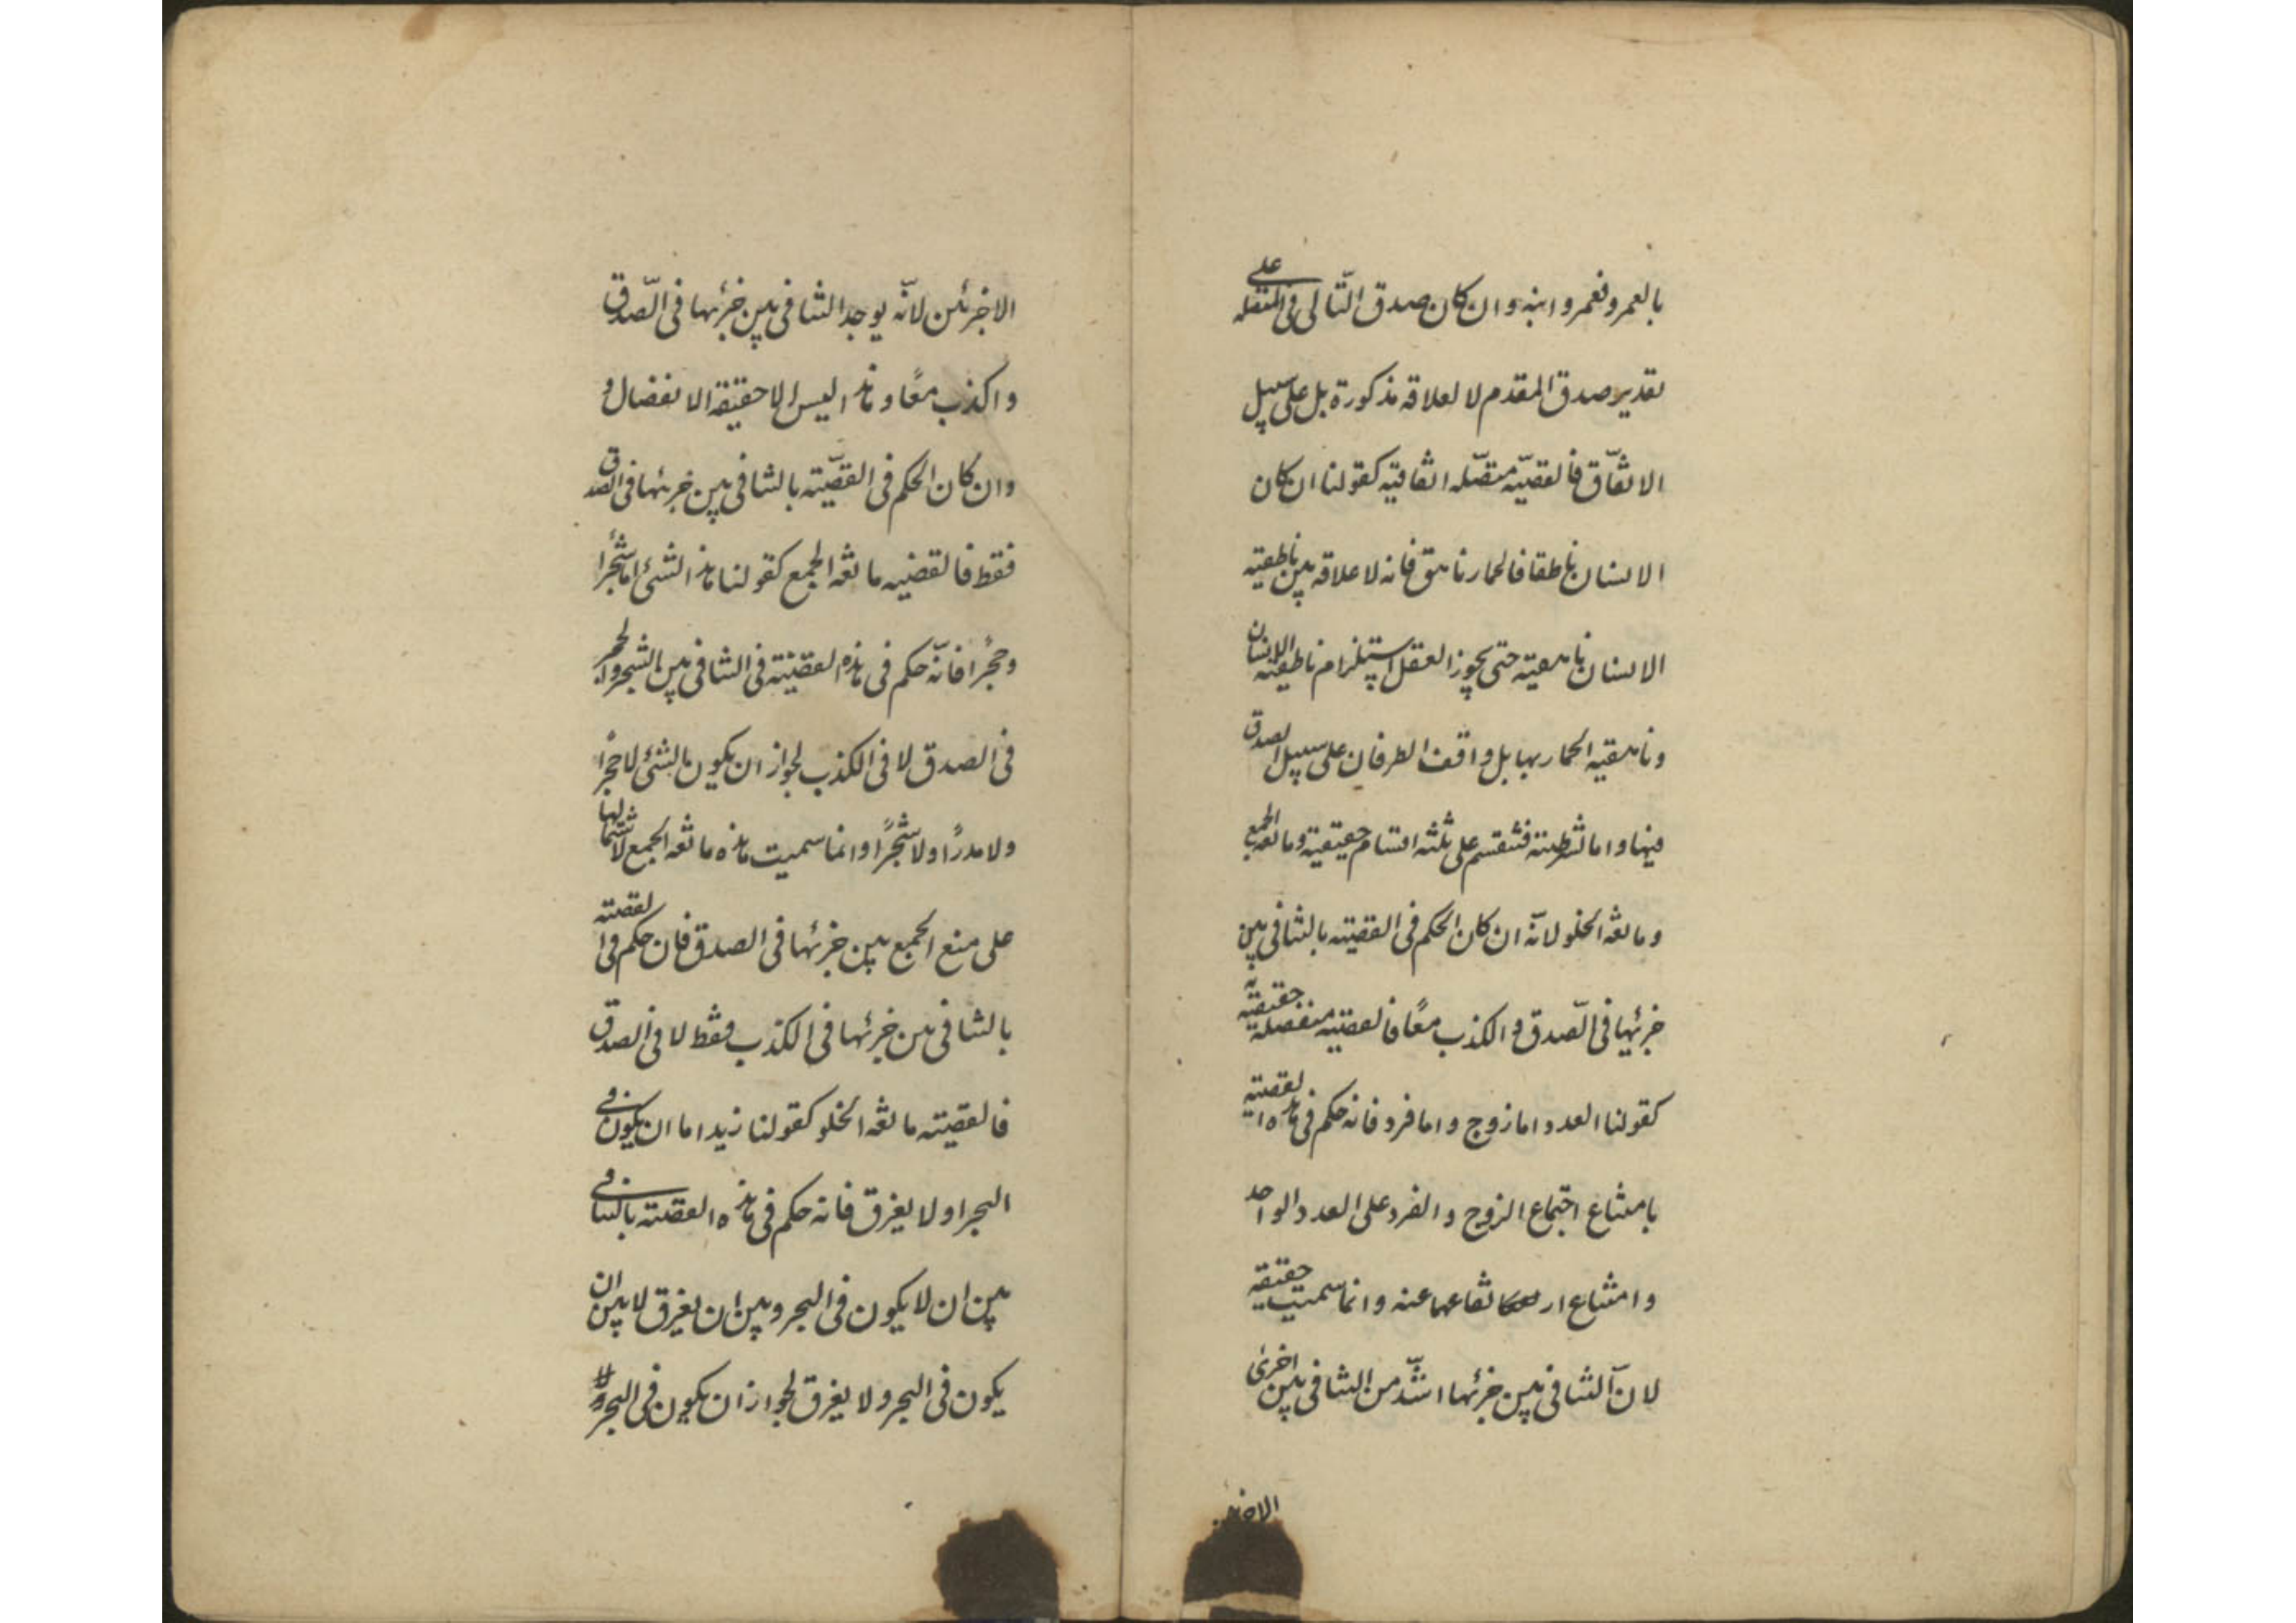 بالعمرو فعمرو ابنه وان كان صدق التّالى فى المتصله على
تقدير صدق المقدم لا لعلاقه مذكورة بل على سبيل
الاتّفاق فالقضيّه متصّله اتفاقيّه كقولنا ان كان
الانسان ناطقا فالحمار ناهق فانه لا علاقه بين ناطقيّه
الانسان ناهقيّه حتى يجوز العقل استلزام ناطقيّه الانسان
وناهقيه الحمار بها بل واقف الطرفان على سبيل الصدق
فيها واما الشرطيّه فتنقسم على ثلثه اقسام حقيقيّة ومانعه الجمع
ومانعه الخلو لانّه ان كان الحكم فى القضيّه بالتنافى بين
جزئيها فى الصّدق و الكذب معًا فالقضيّه منفصلة حقيقيّه
كقولنا العدد اما زوج واما فرد فانه حكم فى هذه القضيّه
بامتناع اجتماع الزوج و الفرد على العدد الواحد
وامتناع ار تفاعهما عنه وانما سميت حقيقيّه
لانّ التنافى بين جزئها اشدّ من التنافى بين اخرى
الاخرئين
الاخرئين لانّه يوجد التنافى بين جزئها فى الصّدق
و اكذب معًا و هذا ليس الا حقيقة الانفصال و
وان كان الحكم فى القضيّه بالتنافى بين جزئها فى الصدق
فقط فالقضيه مانعه الجمع كقولنا هذا الشئ اما شجرًا
وحجرًا فانّه حكم فى هذه القضيّة فى التنافى بين الشجر والحجر
فى الصدق لا فى الكذب لجواز ان يكون الشئ لا حجرًا
ولا مدرًا ولا شجرًا وانما سميت هذه مانعه الجمع لاشتمالها
على منع الجمع بين جزئها فى الصدق فان حكم فى القضيّه
بالتنافى بين جزئها فى الكذب فقط لا فى الصدق
فالقضيّه مانعه الخلو كقولنا زيد اما ان يكون فى
البحر او لا يغرق فانه حكم فى هذه القضيّه بالتنافى
بين ان لا يكون فى البحر وبين ان يغرق لا بين ان
يكون فى البحر ولا يغرق لجواز ان يكون فى البحر ولا